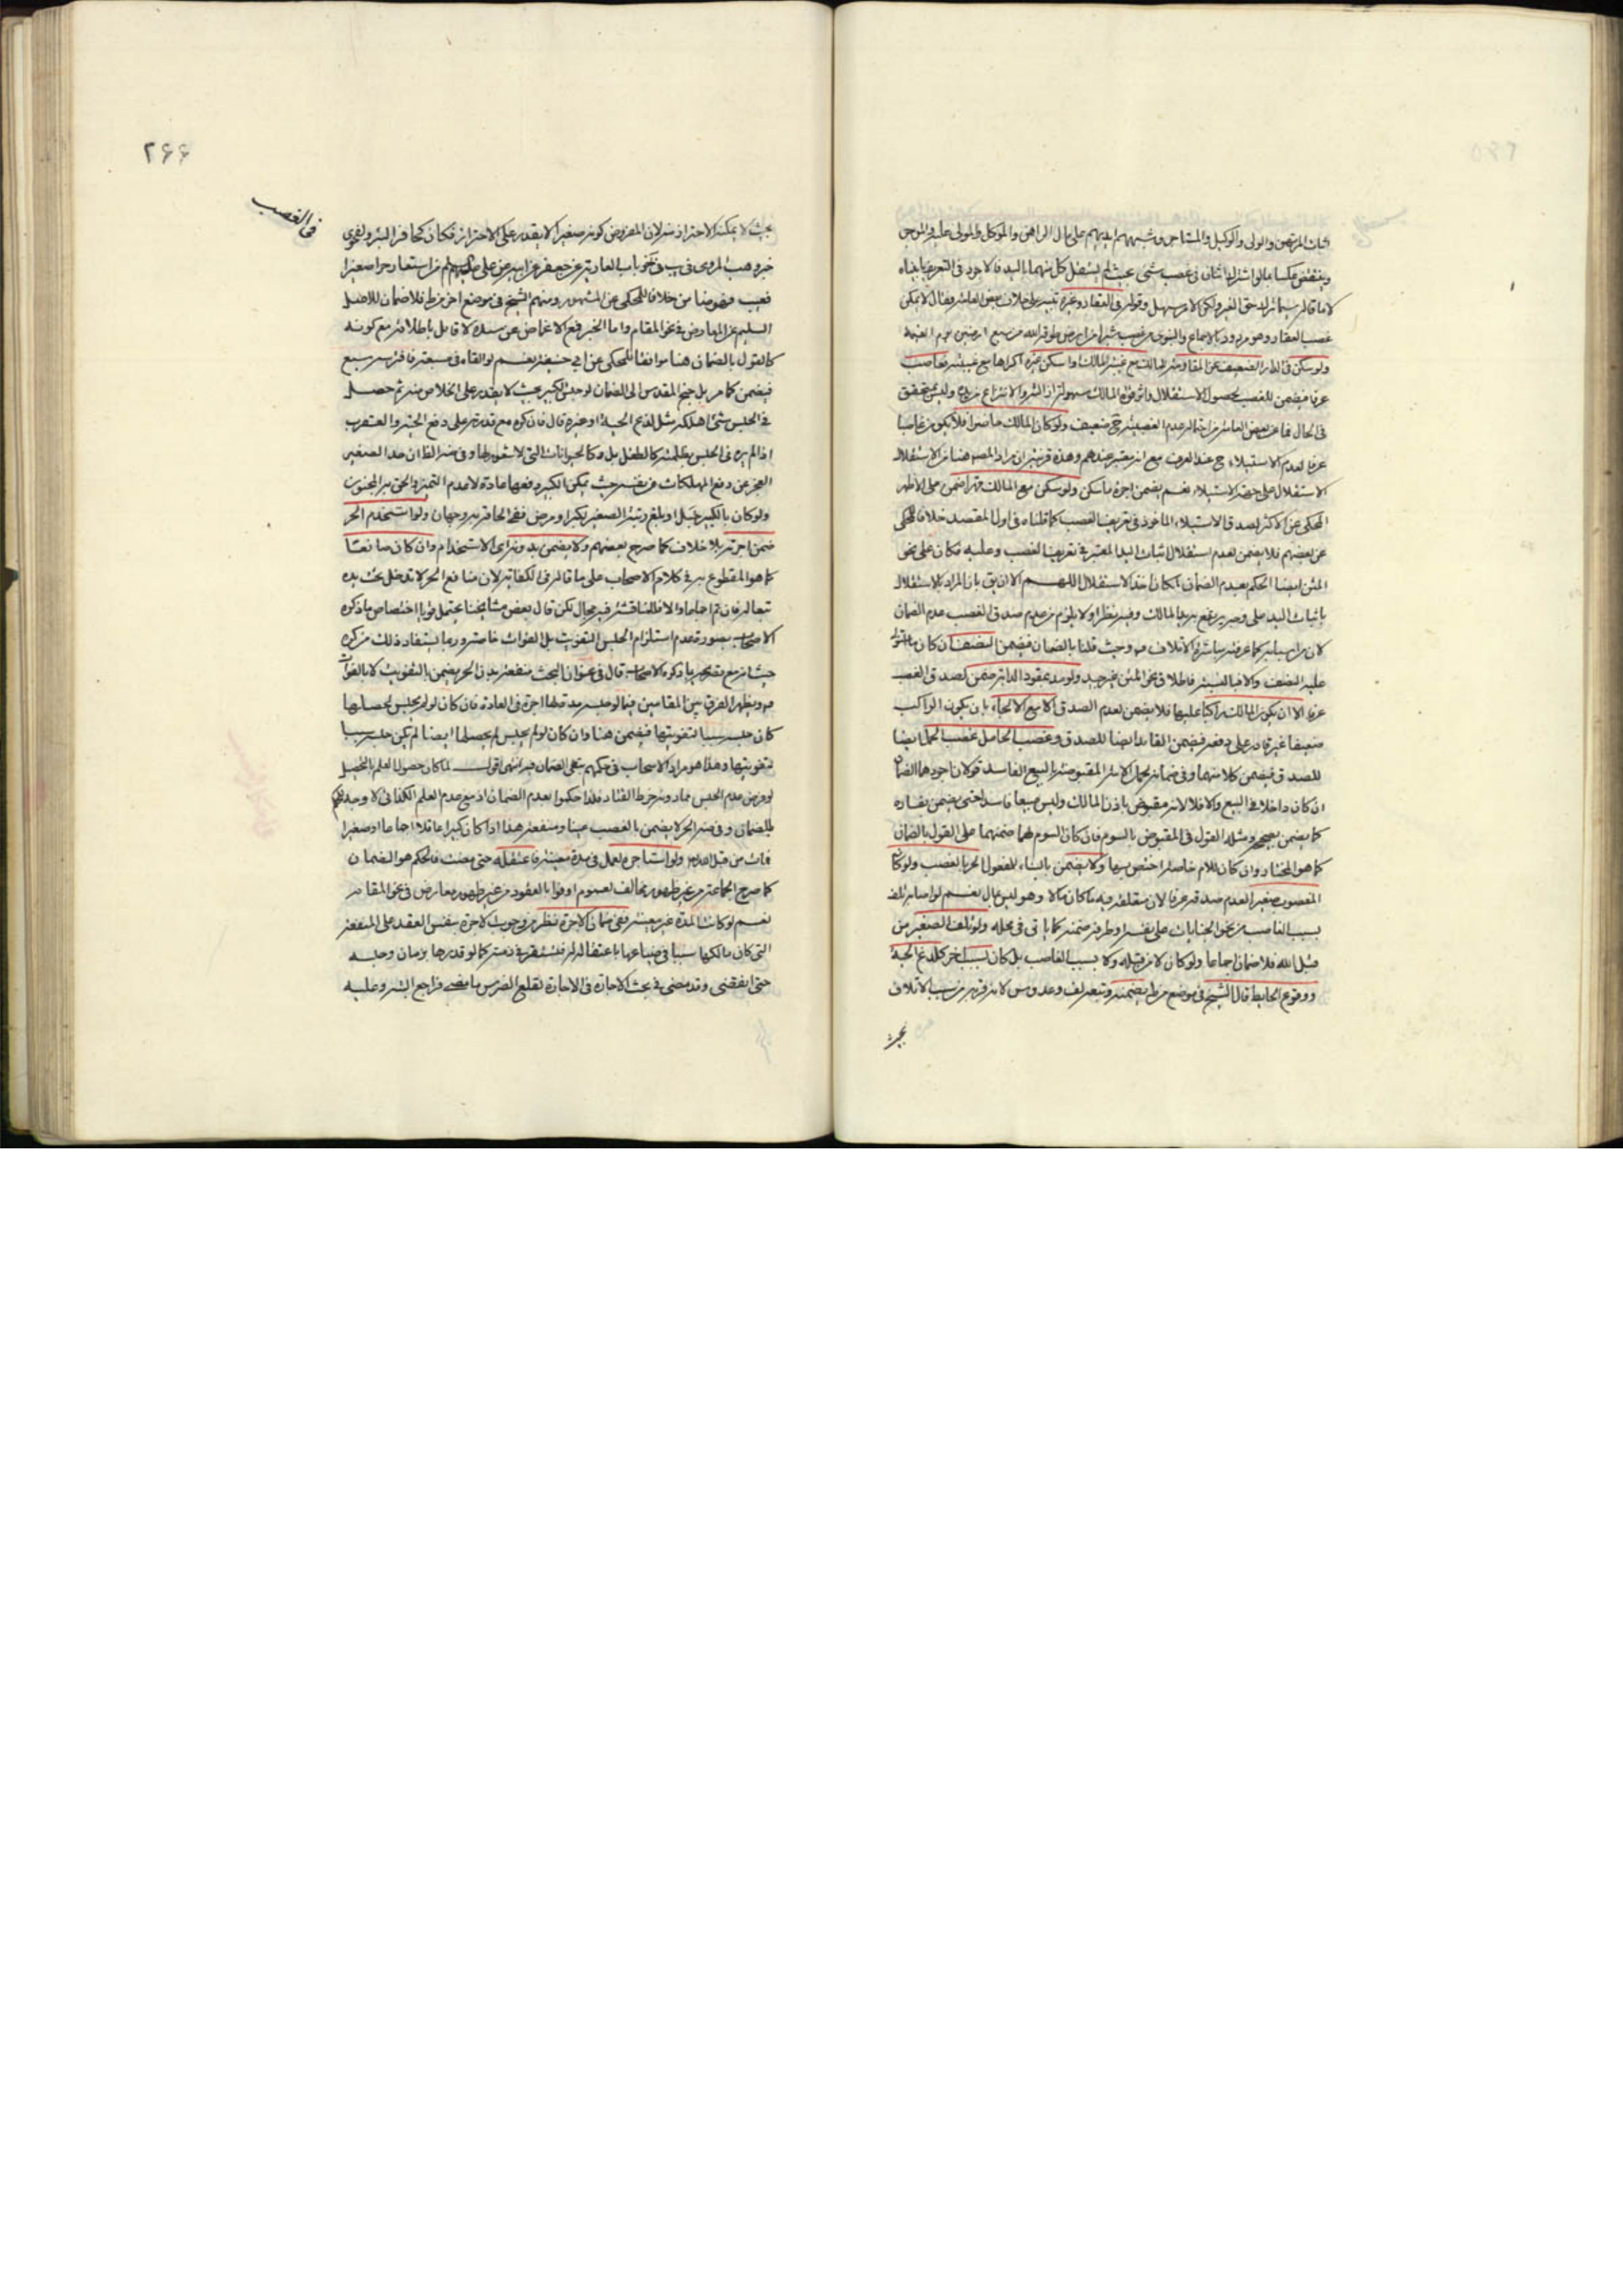 اثبات المرتهن والولى والوكيل والمستاجر وشبههم ايديهم على مال الراهن والموكل والمولى عليه والموجر
وينتقض عكسا بما لو اشترك اثنان فى غصب شئ بحيث لم يستقل كل منهما باليد فالاجود فى التعريف ما
لا ما قاله حق الغير ولكن الامر سهل وقوله فى العقار وغيره تنبيه على خلاف بعض العامة فقال لا يمكن
غصب العقار وهو مردود بالاجماع والنبوى من غصب شبرا من ارض طوقه الله من سبع ارضين يوم القيمة
ولو سكن فى الدار الضعيف عن المقاومة للمالك مع غيبة المالك او اسكن غيره اكراها مع غيبته فغاصب
عرفا فيضمن للغصب لحصول الاستقلال وليس يتحقق
فى الحال فما عن بعض العامة من عدم الغصبية ح ضعيف ولو كان المالك حاضرا فلا يكون غاصبا
عرفا لعدم الاستيلاء ح عند العرف مع انه معتبر عندهم وهذه قرينة ان مراد المص هنا من الاستقلال
الاستقلال على جهة الاستيلاء نعم يضمن اجرة ما سكن ولو سكن مع المالك قهرا ضمن على الاظهر
المحكى عن الاكثر لصدق الاستيلاء الماخوذ فى تعريف الغصب كما قلناه فى اول المقصد خلافا للمحكى
عن بعضهم فلا يضمن لعدم استقلال اثبات اليد المعتبر فى تعريف الغصب وعليه فكان على نحو
المتن ايضا الحكم بعدم الضمان لمكان اخذ الاستقلال اللهم الا ان يق بان المراد بالاستقلال
باثبات اليد على وجه يرتفع به يد المالك وفيه نظر او لا يلزم من عدم صدق الغصب عدم الضمان
لان من اسبابه كما عرفته مباشرة الاتلاف وحيث قلنا بالضمان فيضمن النصف ان كان ما استولى
عليه النصف والا فبالنسبة فاطلاق نحو المتن غير جيد ولو مد بمقود الدابة ضمن لصدق الغصب
عرفا الا ان يكون المالك راكبا عليها فلا يضمن لعدم الصدق الا مع الالجاء بان يكون الراكب
ضعيفا غير قادر على دفعه فيضمن القائد ايضا للصدق وغصب الحامل غصب الحمل ايضا
للصدق فيضمن كلا منهما وفى ضمانه لحمل الامة المقبوضة بالبيع الفاسد قولان اجودهما الضمان
ان كان داخلا فى البيع والا فلا لانه مقبوض باذن المالك وليس مبيعا فاسدا حتى يضمن بفساده
كما يضمن بصحيحه ومثله القول فى المقبوض بالسوم فان كان السوم لهما ضمنهما على القول بالضمان
كما هو المختار وان كان للام خاصة اختص بها ولا يضمن بالبناء للمفعول الحر بالغصب ولو كان
المغصوب صغيرا لعدم صدقه عرفا لان متعلقه فيه ما كان مالا وهو ليس بمال نعم لو اصابه تلف
بسبب الغاصب من نحو الجنايات على نفسه او طرفه ضمنه كما ياتى فى محله ولو تلف الصغير من
قبل الله فلا ضمان اجماعا ولو كان لا من قبله ولا بسبب الغاصب بل كان بسبب اخر كلدغ الحية
ووقوع الحايط قال الشيخ فى موضع من ط يضمنه وتبعه لف وعد وس لانه قربه من سبب الاتلاف
بحيث
٢۶۶
فى الغصب
بحيث لا يمكنه الاحتراز منه لان المفروض كونه صغيرا لا يقدر على الاحتراز فكان كحافر البئر ولفحوى
خبر وهب المروى فى يب فى نحو باب العارية عن جعفر عن ابيه عن على عليهم السلم من استعار حرا صغيرا
فعيب ضمن خلافا للمحكى عن المشهور ومنهم الشيخ فى موضع اخر من ط فلا ضمان للاصل
السليم عن المعارض فى نحو المقام واما الخبر فمع الاغماض عن سنده لا قائل باطلاقه مع كونه
كالقول بالضمان هنا موافقا للمحكى عن ابى حنيفة نعم لو القاه فى مسبعة فافترسه سبع
فيضمن كما مر بل جنح المقدس الى الضمان لو حبس الكبير بحيث لا يقدر على الخلاص منه ثم حصل
فى الحبس شئ اهلكه مثل لدغ الحية او غيره قال فان كونه مع قدرته على دفع الحية والعقرب
اذا لم يره فى الحبس بظلمة كالطفل بل وكالحيوانات التى لا شعور لها وفى ضه الظ ان حد الصغير
العجز عن دفع المهلكات عن نفسه حيث يمكن الكبير دفعها عادة لا عدم التميز والحق به المجنون
ولو كان بالكبير خبل او بلغ رتبة الصغير لكبر او مرض ففى الحاقه به وجهان ولو استخدم الحر
ضمن اجرته بلا خلاف كما صرح بعضهم ولا يضمن بدون اى الاستخدام وان كان صانعا
كما هو المقطوع به فى كلام الاصحاب على ما قاله فى الكفاية لان منافع الحر لا تدخل تحت يده
تبعا له فان تم اجماعا والا فللمناقشة فيه مجال لكن قال بعض مشايخنا يحتمل قويا اختصاص ما ذكره
الاصحاب بصورة عدم استلزام الحبس التفويت بل الفوات خاصة وربما يستفاد ذلك من كره
حيث انه مع تصريحه بما ذكره الاصحاب قال فى عنوان البحث منفعة بدن الحر يضمن بالتفويت لا بالفوات
ويظهر الفرق بين المقامين فيما لو حبسه مدة لها اجرة فى العادة فان كان لو لم يحبس لحصلها
كان حبسه سببا لتفويتها فيضمن هنا وان كان لو لم يحبس لم يحصلها ايضا لم يكن حبسه سببا
لتفويتها وهذا هو مراد الاصحاب فى حكمهم بنفى الضمان فيه انتهى اقول لما كان حصول العلم بالتحصيل
لو فرض عدم الحبس مما دونه خرط القتاد فلذا حكموا بعدم الضمان اذ مع عدم العلم لا وجه للحكم
بالضمان وفى ضه الحر لا يضمن بالغصب عينا ومنفعة هذا اذا كان كبيرا عاقلا اجماعا او صغيرا
فمات من قبل الله ولو استاجره لعمل فى مدة معينة فاعتقله حتى مضت فالحكم هو الضمان
كما صرح به جماعة من غير ظهور مخالف لعموم اوفوا بالعقود من غير ظهور معارض فى نحو المقام
نعم لو كانت المدة غير معينة ففى ضمان الاجرة نظر من وجوب الاجرة بنفس العقد على المنفعة
التى كان مالكها سببا فى ضياعها باعتقاله له فتستقر فى ذمته كما لو قدرها بزمان وحبسه
حتى انقضى وقد مضى فى بحث الاجارة فى الاجارة لقلع الضرس ما ينفع فراجع اليه وعليه